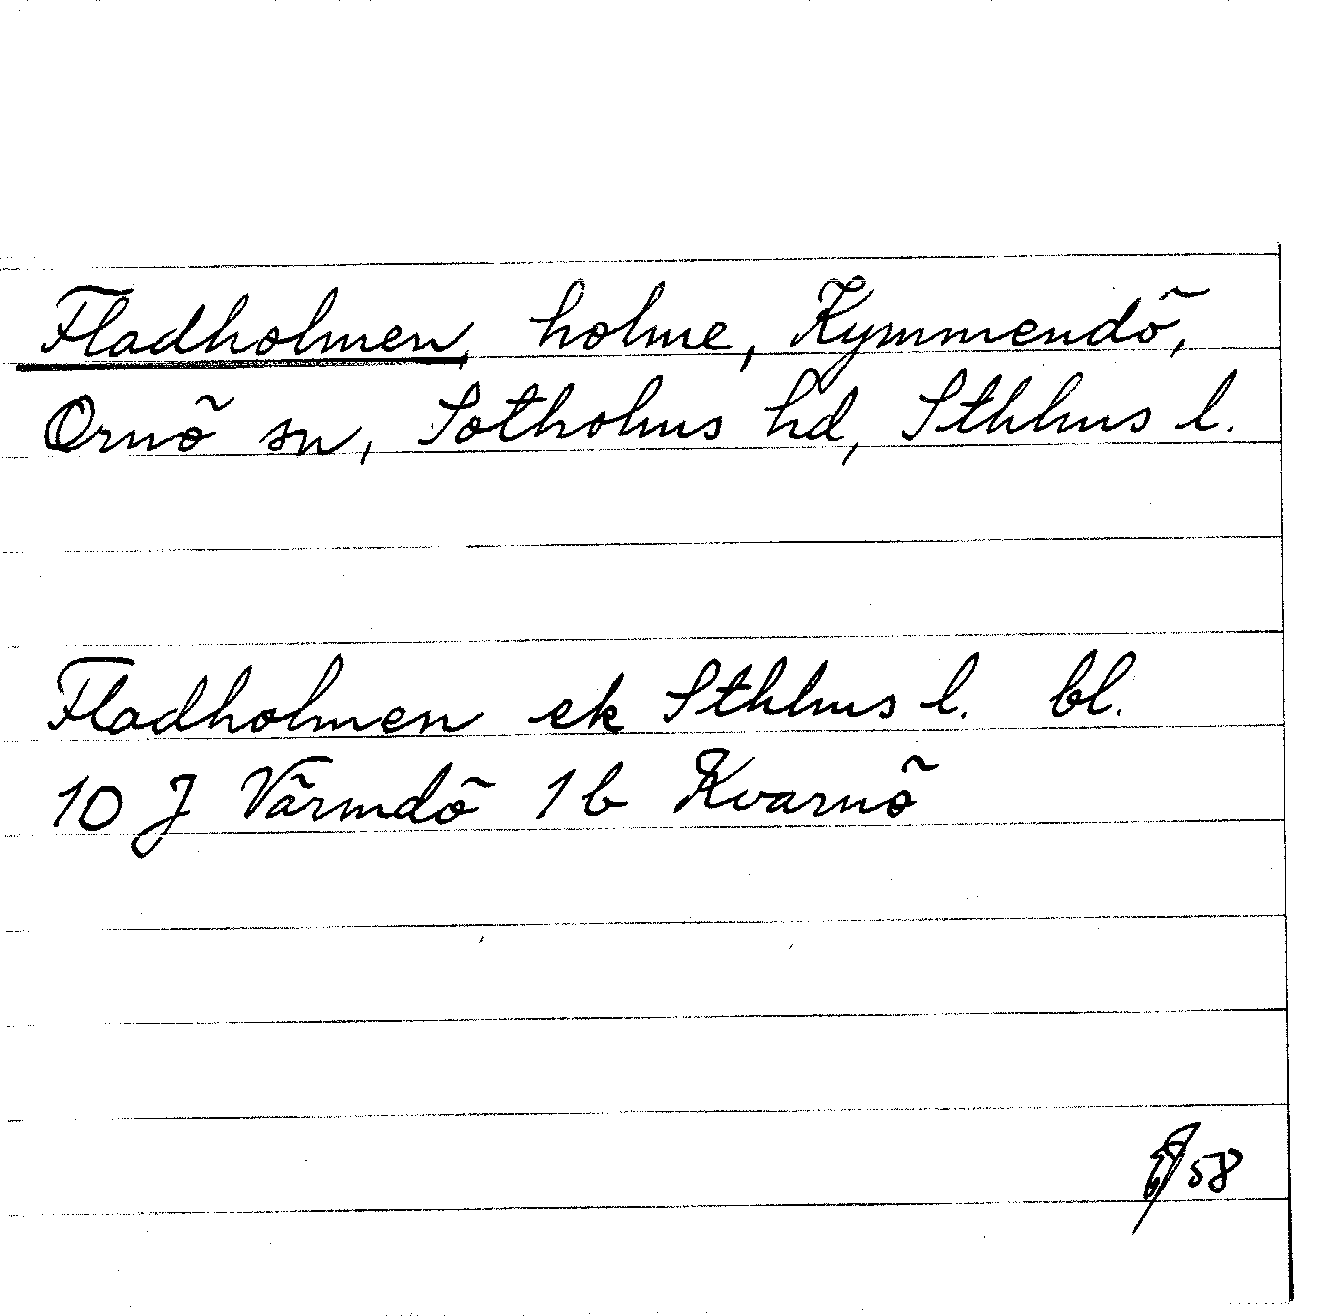 Fladholmen, holme, Kymmendö,
Ornö sn, Sotholms hd, Sthlms l.
Fladholmen ek Sthlms l. bl.
10 J Värmdö 1 b Kvarnö
58